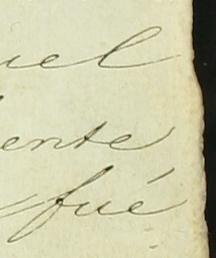 uel
ente
fué